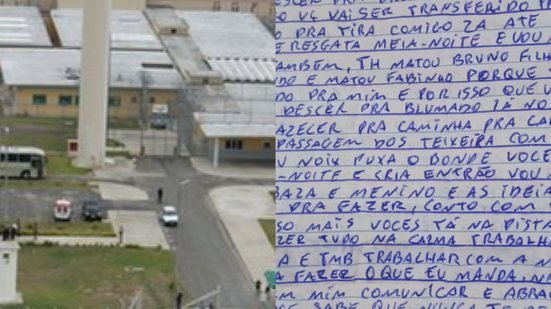 VC VAI SER TRANSFERIDO
PRA TIRA COMIGO ZA ATE
RESGATA MEIA-NOITE E VOU
TAMBEM, TH MATOU BRUNO FILH
DO E MATOU FABINHO PORQUE
DO PRA MIM E POR ISSO QUE
DESCER PRA BLUMADO ZA NO
PRA CAMINHA PRA CA
PASSAGEM DOS TEIXEIRA COM
NOIX PUXA O DONDE VOCE
-NOITE E CRIA ENTRÃO VOU
BAZA E MENINO E AS IDEIA
PRA FAZER, CONTO COM
SO MAIS VOCES TÁ NA PISTA
ZER TUDO NA CALMA TRABALH
A E TMB TRABALHAR COM A N
A FAZER O QUE EU MANDA, N
MIM COMUNICAR E ABRA
SABE QUE NUNCA TE